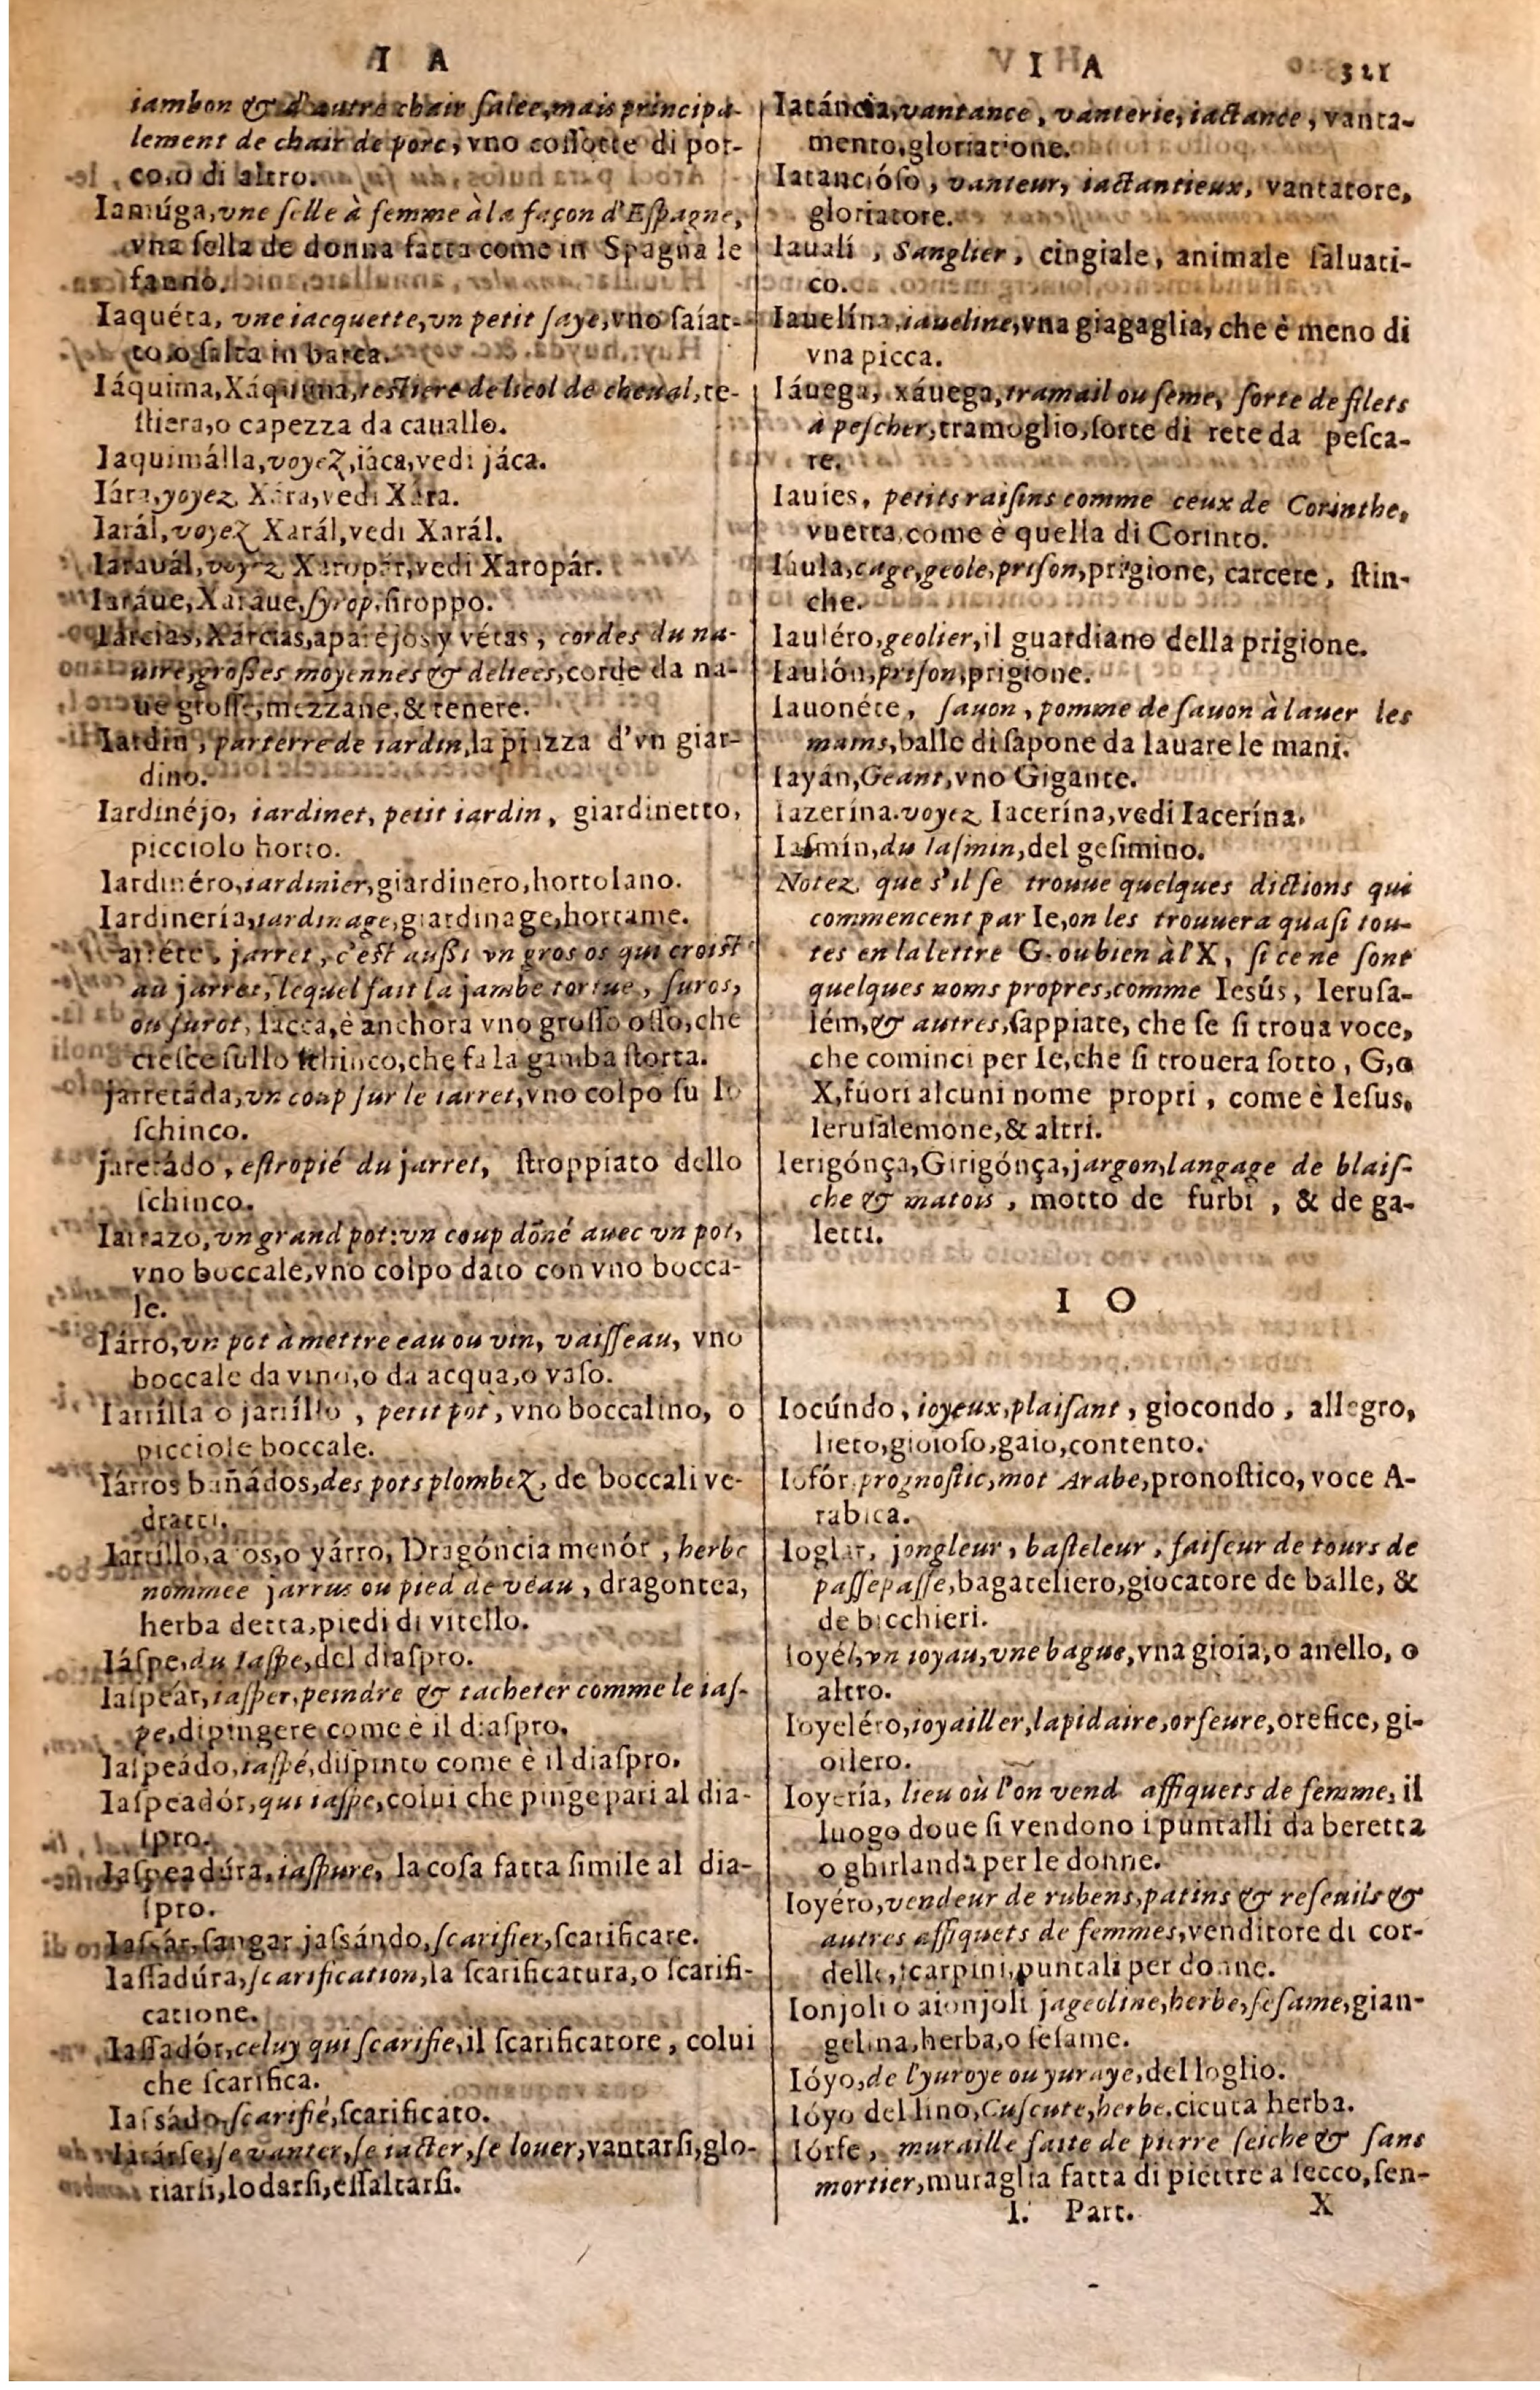 I A
iambon & d'autre chair salee, mais principa-
lement de chair de porc, vno cossotte di por-
co, o di altro.
Iamúga, vne selle à femme à la façon d'Espagne,
vna sella de donna fatta come in Spagna le
fanno.
Iaquéta, vne iacquette, vn petit saye, vno saíat-
to, o salta in barca.
Iáquima, Xáquima, testiere de licol de cheual, te-
stiera, o capezza da cauallo.
Iaquimálla, voyez, iáca, vedi jáca.
Iára, voyez Xára, vedi Xára.
Iarál, voyez Xarál, vedi Xarál.
Iarauál, voyez Xaropár, vedi Xaropár.
Iaráue, Xaráue, syrop, siroppo.
Iárcias, Xárcias, aparéjos y vétas, cordes du na-
uire, grosses moyennes & deliees, corde da na-
ue grosse, mezzane, & tenere.
Iardín, parterre de iardin, la piazza d'vn giar-
dino.
Iardinéjo, iardinet, petit iardin, giardinetto,
picciolo horto.
Iardinéro, iardinier, giardinero, hortolano.
Iardinería, iardinage, giardinage, hortame.
arréte, jarret, c'est aussi vn gros os qui croist
au jarret, lequel fait la jambe tortue, suros,
ou surot, lacca, è anchora vno grosso osso, che
cresce sullo schinco, che fa la gamba storta.
jarretáda, vn coup sur le iarret, vno colpo su lo
schinco.
jaretádo, estropié du jarret, stroppiato dello
schinco.
Iarrazo, vn grand pot: vn coup dõné auec vn pot,
vno boccale, vno colpo dato con vno bocca-
le.
Iárro, vn pot à mettre eau ou vin, vaisseau, vno
boccale da vino, o da acqua, o vaso.
Iarrílla o jarríllo, petit pot, vno boccalino, o
picciole boccale.
Iárros bañádos, des pots plombez, de boccali ve-
dratti.
Iarrillo, a os, o yárro, Dragóncia menór, herbe
nommee jarrus ou pied de veau, dragontea,
herba detta, piedi di vitello.
Iáspe, du iaspe, del diaspro.
Iaspeár, iasper, peindre & tacheter comme le ias-
pe, dipingere come è il diaspro.
Iaspeádo, iaspé, dispinto come è il diaspro.
Iaspeadór, qui iaspe, colui che pinge pari al dia-
spro.
Iaspeadúra, iaspure, la cosa fatta simile al dia-
spro.
Iassár, sangar jassándo, scarifier, scarificare.
Iassadúra, scarification, la scarificatura, o scarifi-
catione.
Iassadór, celuy qui scarifie, il scarificatore, colui
che scarifica.
Iassádo, scarifié, scarificato.
Iatárse, se vanter, se iacter, se louer, vantarsi, glo-
riarsi, lodarsi, essaltarsi.
I A 321
Iatáncia, vantance, vanterie, iactance, vanta-
mento, gloriatione.
Iatancióso, vanteur, iactantieux, vantatore,
gloriatore.
Iaualí, Sanglier, cingiale, animale saluati-
co.
Iauelína, iaueline, vna giagaglia, che è meno di
vna picca.
Iáuega, xáuega, tramail ou seme, sorte de filets
à pescher, tramoglio, sorte di rete da pesca-
re.
Iauies, petits raisins comme ceux de Corinthe,
vuetta, come è quella di Corinto.
Iáula, cage, geole, prison, prigione, carcere, stin-
che.
Iauléro, geolier, il guardiano della prigione.
Iaulón, prison, prigione.
Iauonéte, sauon, pomme de sauon à lauer les
mains, balle di sapone da lauare le mani.
Iayán, Geant, vno Gigante.
Iazerína. voyez Iacerína, vedi Iacerína.
Iasmín, du Iasmin, del gesimino.
Notez que s'il se trouue quelques dictions qui
commencent par Ie, on les trouuera quasi tou-
tes en la lettre G. ou bien à l'X, si ce ne sont
quelques noms propres, comme Iesús, Ierusa-
lém, & autres, sappiate, che se si troua voce,
che cominci per Ie, che si trouera sotto, G, o
X, fúori alcuni nome propri, come è Iesus,
Ierusalemone, & altri.
Ierigónça, Girigónça, jargon, langage de blais-
che & matois, motto de furbi, & de ga-
letti.
I O
Iocúndo, ioyeux, plaisant, giocondo, allegro,
lieto, gioioso, gaio, contento.
Iofór, prognostic, mot Arabe, pronostico, voce A-
rabica.
Ioglar, jongleur, basteleur, faiseur de tours de
passepasse, bagateliero, giocatore de balle, &
de bicchieri.
Ioyél, vn ioyau, vne bague, vna gioia, o anello, o
altro.
Ioyeléro, ioyailler, lapidaire, orfeure, orefice, gi-
oilero.
Ioyería, lieu où l'on vend affiquets de femme, il
luogo doue si vendono i puntalli da beretta
o ghirlanda per le donne.
Ioyéro, vendeur de rubens, patins & reseuils &
autres affiquets de femmes, venditore di cor-
delle, scarpini, puntali per donne.
Ionjoli o aionjoli jageoline, herbe, sesame, gian-
gelina, herba, o sesame.
Ióyo, de l'yuroye ou yuraye, del loglio.
Ióyo del lino, Cuscute, herbe, cicuta herba.
Iórfe, muraille faite de pierre seiche & sans
mortier, muraglia fatta di piettre a secco, sen-
I. Part. X